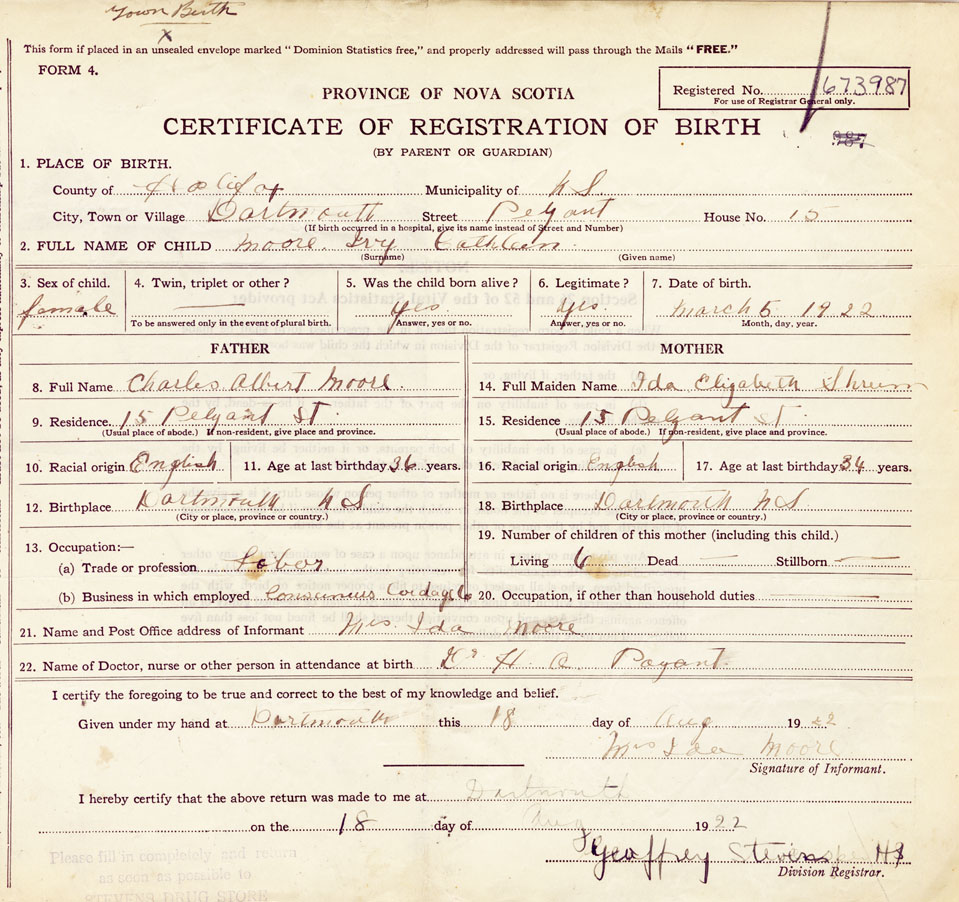 Town Birth
x
This form if placed in an unsealed envelope marked "Dominion Statistics free," and properly addressed will pass through the Mails "FREE."
FORM 4.
Registered No. 673987
For use of Registrar General only.
PROVINCE OF NOVA SCOTIA
CERTIFICATE OF REGISTRATION OF BIRTH
(BY PARENT OR GUARDIAN)
1. PLACE OF BIRTH.
County of Halifax Municipality of N S.
City, Town or Village Dartmouth Street Pelzant House No. 15
(If birth occurred in a hospital, give its name instead of Street and Number)
2. FULL NAME OF CHILD Moore. Ivy Cathleen.
(Surname) (Given name)
3. Sex of child. 4. Twin, triplet or other? 5. Was the child born alive? 6. Legitimate? 7. Date of birth.
female Yes. Yes. March 5 1922
To be answered only in the event of plural birth. Answer, yes or no. Answer, yes or no. Month, day, year.
FATHER MOTHER
8. Full Name Charles Albert Moore. 14. Full Maiden Name Ida Elizabeth
9. Residence. 15 Pelzant St 15. Residence 15 Pelzant St.
(Usual place of abode.) If non-resident, give place and province. (Usual place of abode.) If non-resident, give place and province.
10. Racial origin English 11. Age at last birthday 36 years. 16. Racial origin English 17. Age at last birthday 34 years.
12. Birthplace Dartmouth N S. 18. Birthplace Dartmouth N S
(City or place, province or country.) (City or place, province or country.)
13. Occupation:— 19. Number of children of this mother (including this child.)
(a) Trade or profession Labor Living 6 Dead — Stillborn —
(b) Business in which employed Consumers Cordage Co 20. Occupation, if other than household duties —
21. Name and Post Office address of Informant Mrs. Ida Moore
22. Name of Doctor, nurse or other person in attendance at birth Dr H. A. Payant.
I certify the foregoing to be true and correct to the best of my knowledge and belief.
Given under my hand at Dartmouth this 18 day of Aug 1922
Mrs Ida Moore
Signature of Informant.
I hereby certify that the above return was made to me at Dartmouth
on the 18 day of Aug 1922
Geoffrey Stevens
Division Registrar.
Please fill in completely and return
as soon as possible to
STEVENS DRUG STORE